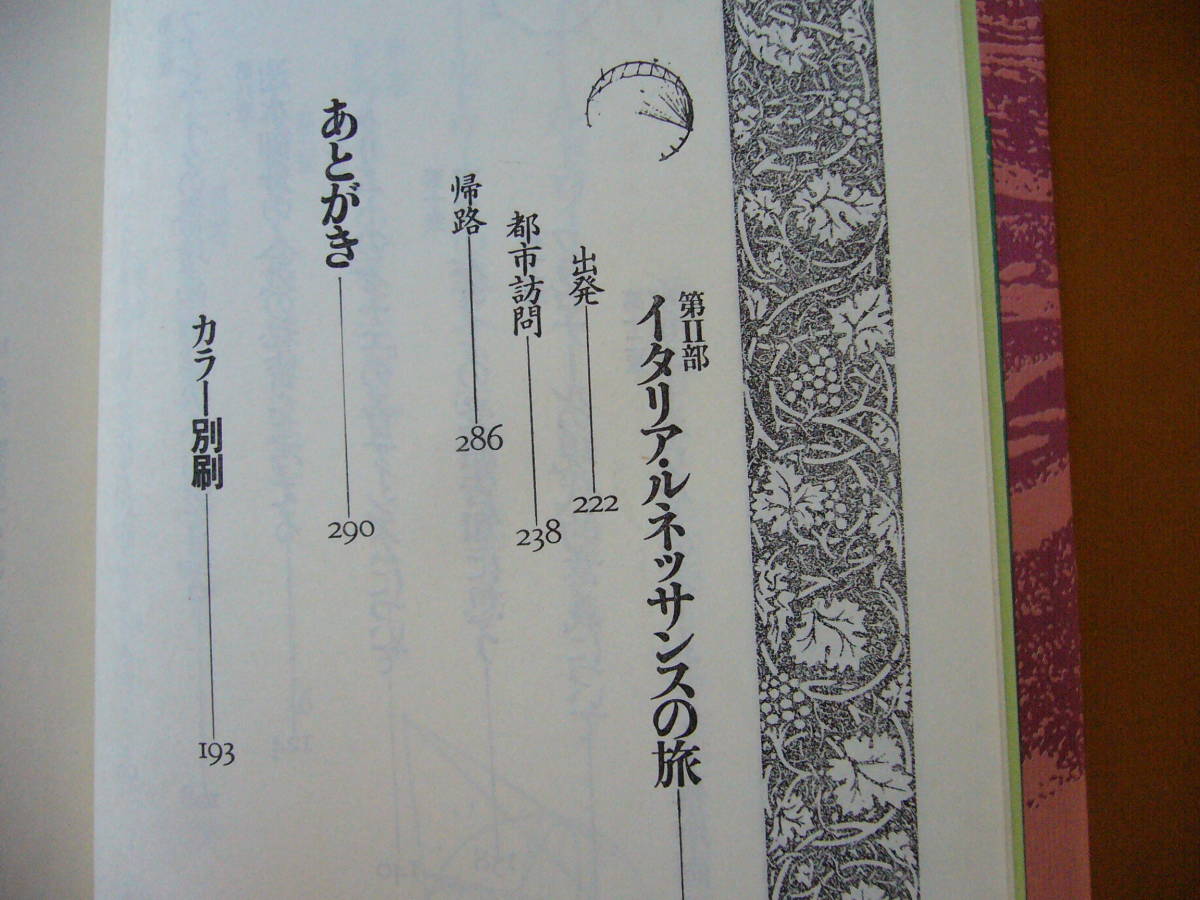 第II部
イタリア・ルネッサンスの旅
出発 222
都市訪問 238
帰路 286
あとがき 290
カラー別刷 193